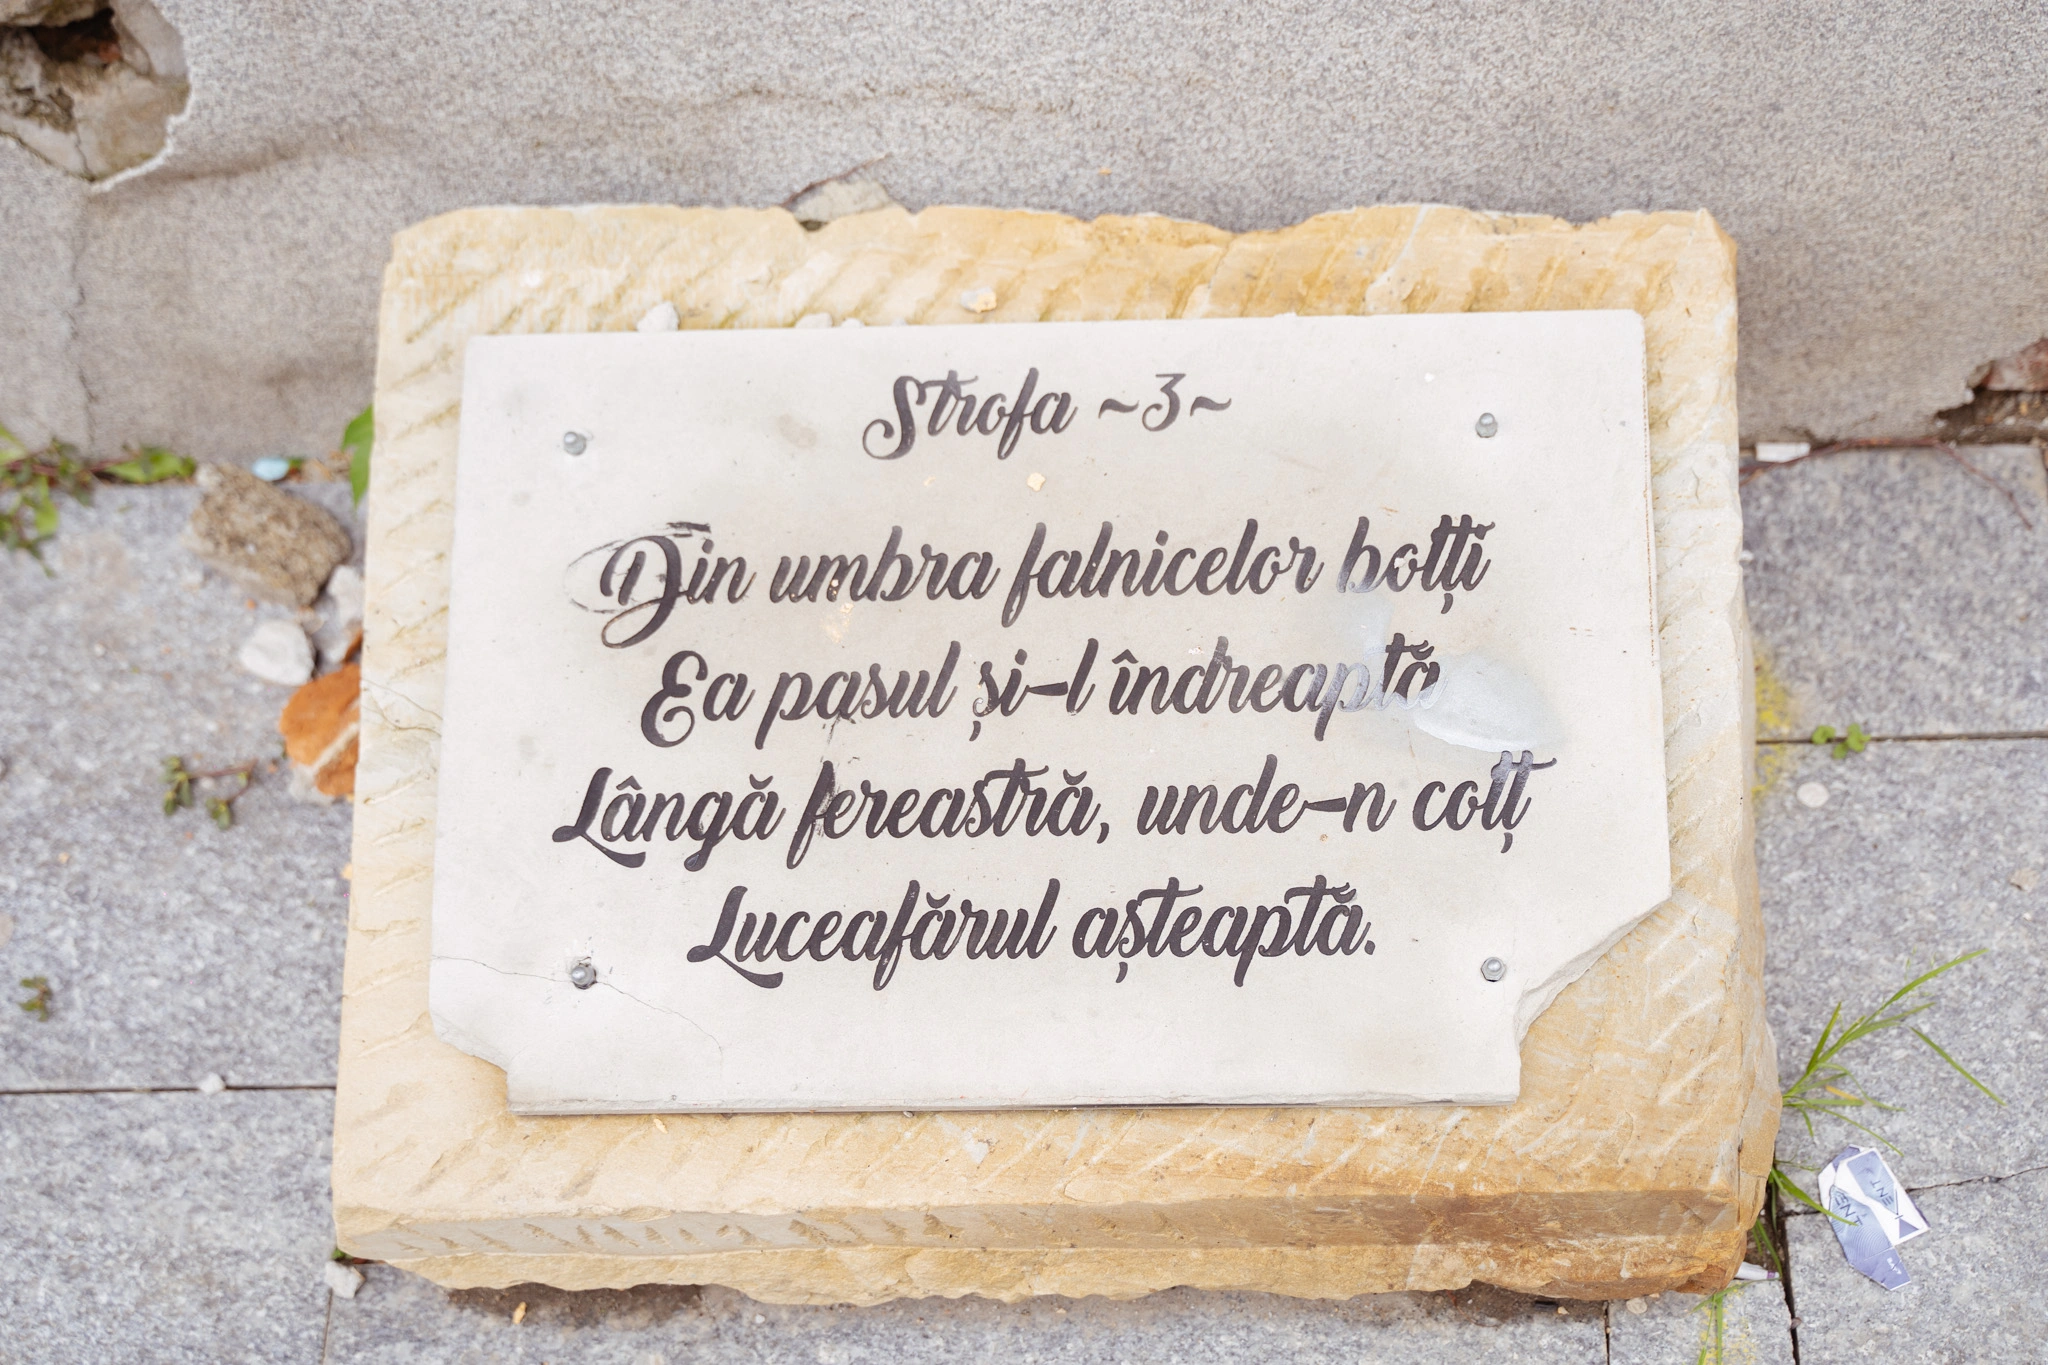 Strofa ~3~
Din umbra falnicelor bolți
Ea pasul și-l îndreaptă
Lângă fereastră, unde-n colț
Luceafărul așteaptă.
KENT